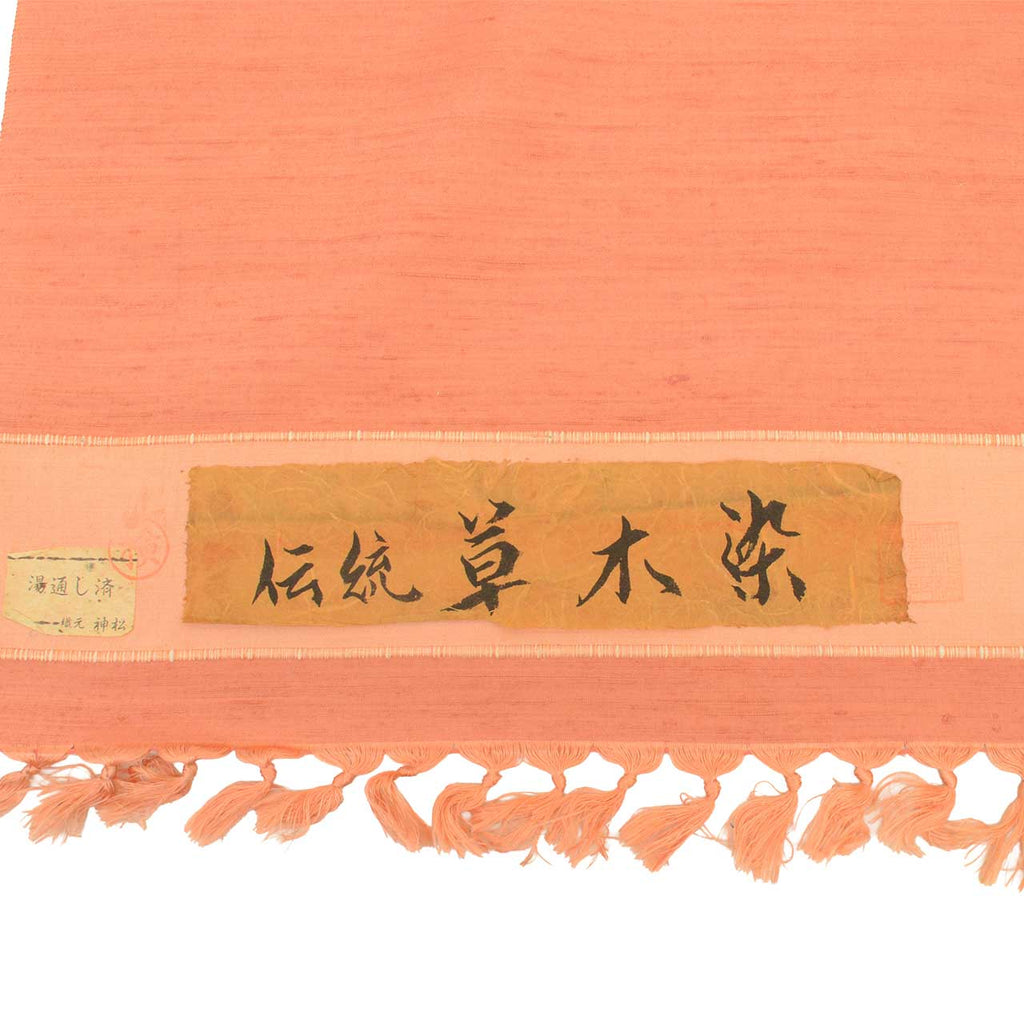 伝統草木染
湯通し済
織元 神松